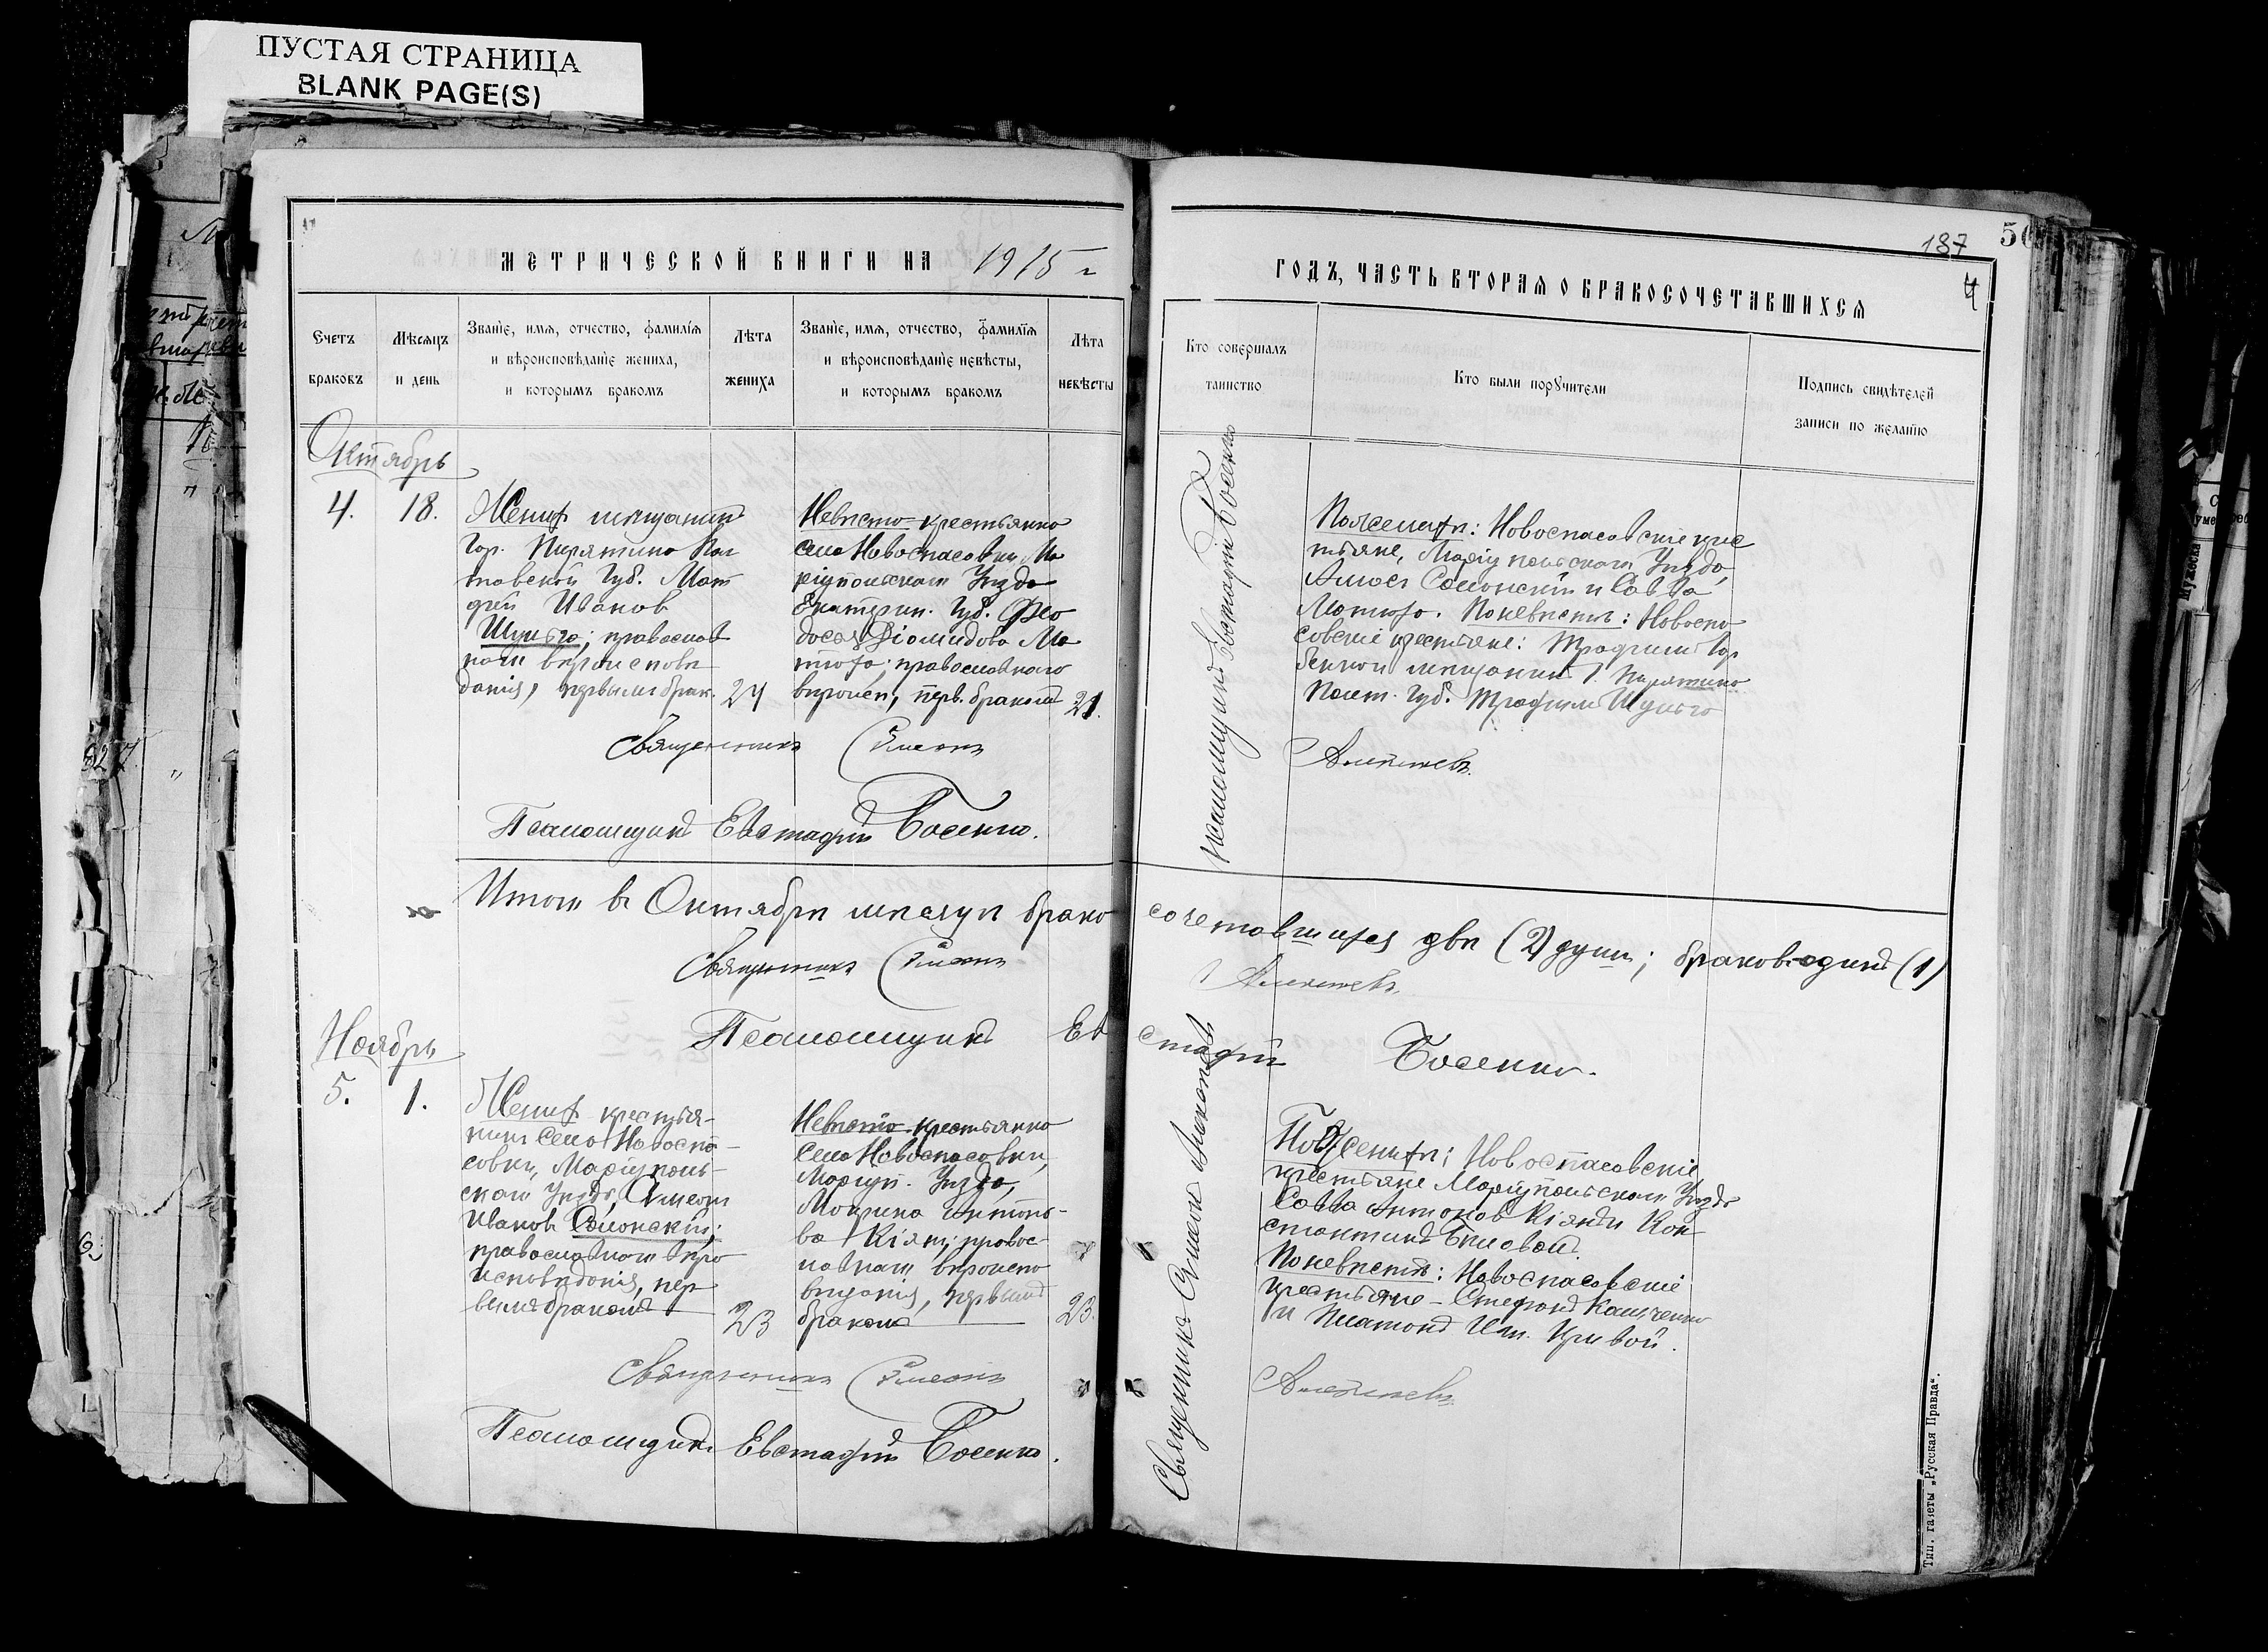 ПУСТАЯ СТРАНИЦА
BLANK PAGE(S)
МЕТРИЧЕСКОЙ КНИГИ НА 1915 г
Счетъ браковъ
Мѣсяцъ и день
Званіе, имя, отчество, фамилія
и вѣроисповѣданіе жениха,
и которымъ бракомъ
Лѣта жениха
Званіе, имя, отчество, фамилія
и вѣроисповѣданіе невѣсты,
и которымъ бракомъ
Лѣта невѣсты
Октябрь
4. 18.
Женихъ мѣщанинъ
Гор. Пирятина Пол
тавской Губ. Мат
фей Иванов
Шульга; православ
наго вѣроисповѣ
данія, первымъ брак. 24
Невѣста крестьянка
села Новоспасовки, Ма
ріупольскаго Уѣзда
Екатерин. Губ. Фео
досія Діомидова Ма
тюха; православнаго
вѣроисп, перв. бракомъ 21.
Священникъ Симеонъ
Псаломщикъ Евстафій Босенко.
Итого въ Октябрѣ мѣсяцѣ брако
Священникъ Симеонъ
Псаломщикъ Ев
Ноябрь
5. 1.
Женихъ крестья-
нинъ Села Новоспа-
совки, Маріуполь-
скаго Уѣзда, Симеонъ
Иванов Салонскій;
православнаго вѣро
исповѣданія, пер
вымъ бракомъ 23
Невѣста крестьянка
Села Новоспасовки,
Маріуп. Уѣзда,
Мокрина Антоно-
ва Кіян; правос-
лавнаго вѣроиспо
вѣданія, первымъ
бракомъ 23.
Священникъ Симеонъ
Псаломщикъ Евстафій Босенко.
187
50
4
ГОДЪ, ЧАСТЬ ВТОРАЯ О БРАКОСОЧЕТАВШИХСЯ
Кто совершалъ таинство
Кто были поручители
Подпись свидѣтелей
записи по желанію
Псаломщикъ Евстафій Босенко
По женихѣ: Новоспасовскіе кре
стьяне, Маріупольскаго Уѣзда,
Амос Салонскій и Савва
Матюха. По невѣстѣ: Новоспа
совскіе крестьяне: Трофим Гор
бенко и мѣщанинъ Г. Пирятина
Полт. Губ. Трофим Шульга
сочетавшихся двѣ (2) души; браковъ-один (1)
стафій Босенко.
Священникъ Симеон
По женихѣ: Новоспасовскіе
крестьяне Маріупольскаго Уѣзда
Савва Антонов Кіян и Кон
стантинъ Бѣловой.
По невѣстѣ: Новоспасовскіе
крестьяне – Стефанъ Кащенко
и Платонъ Кривой.
Тип. газеты „Русская Правда“.